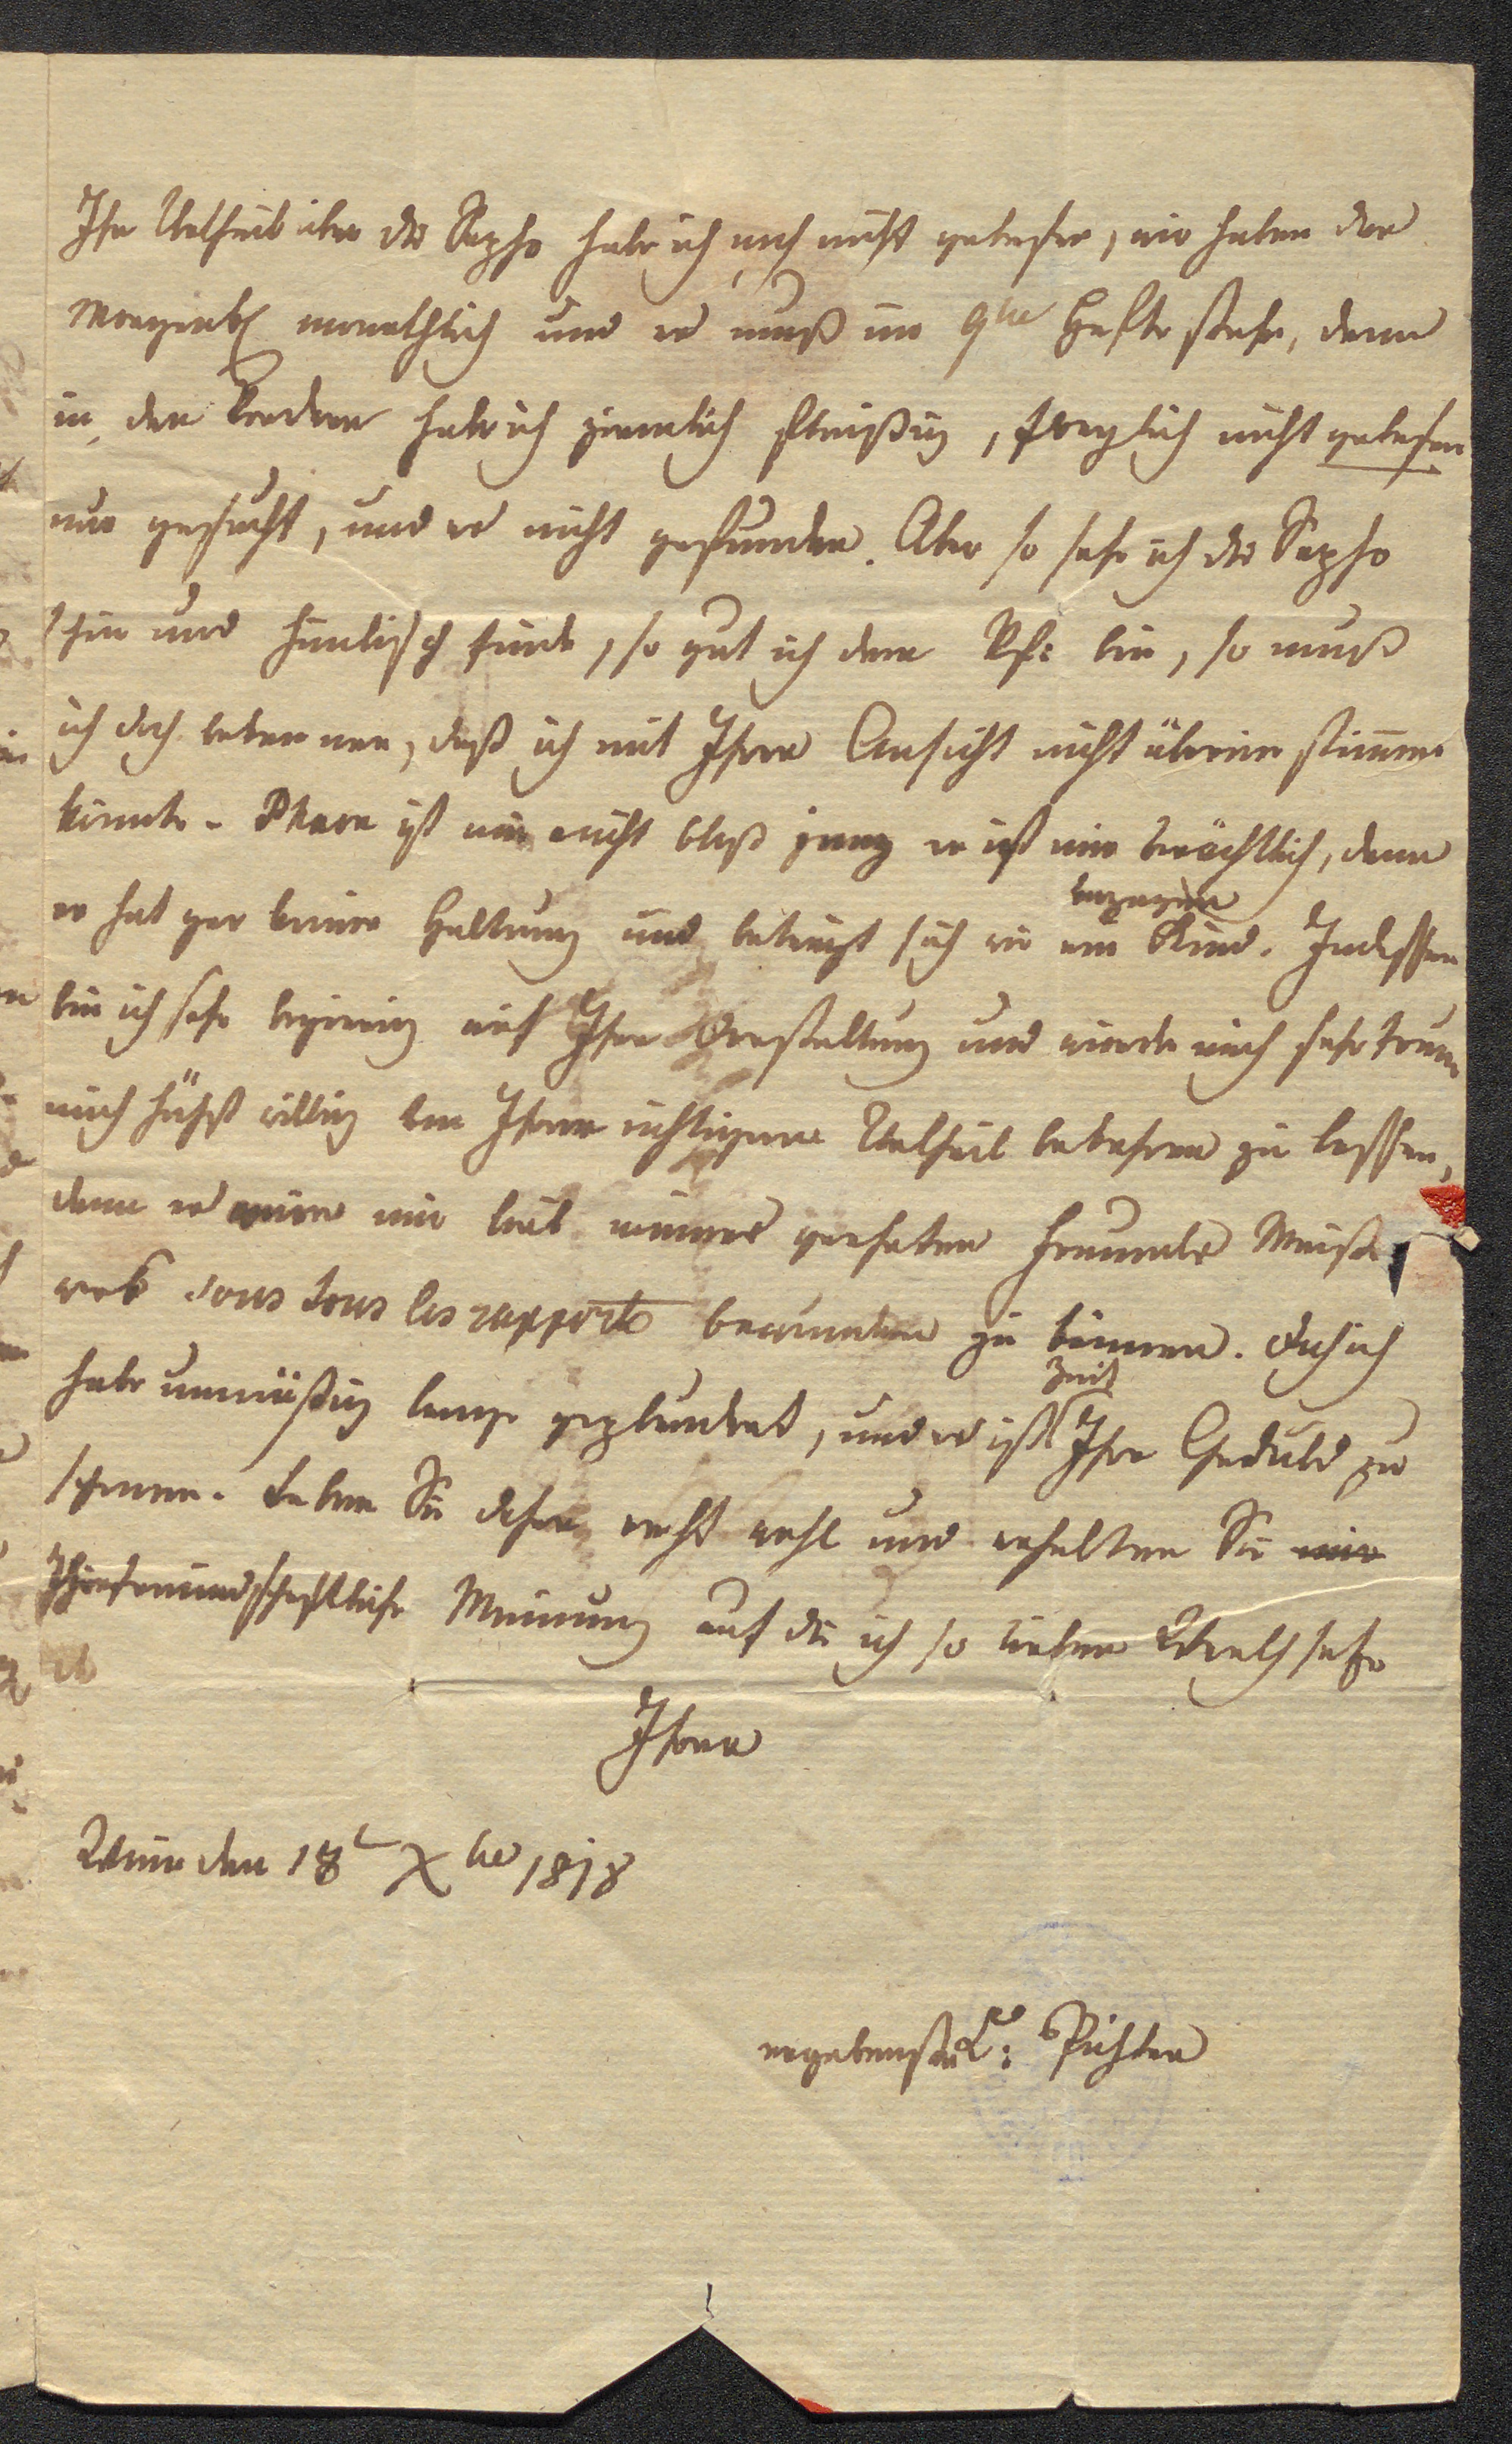 Ihr Urtheil über die Sapho habe ich noch nicht gelesen, wir haben das
Morgenbl monathlich und es muß im 9ber Hefte stehn, denn
in den andern habe ich ziemlich fleißig, freylich nicht gelesen
nur gesucht, und es nicht gefunden. Aber so sehr ich die Sapho
schön und himlisch finde, so gut ich dem Vfs bin, so muß
ich doch bekennen, daß ich mit Ihrer Ansicht nicht überein stimmen
könnte. Phaon ist mir nicht bloß jung er ist mir verächtlich, denn
er hat gar keine Haltung und beträgt sich wie ein Kind. Indessen
bin ich sehr begierig auf Ihre Darstellung und würde mich sehr freun
mich höchst willig von Ihrem richtigern Urtheil bekehren zu lassen,
denn es wäre mir lieb meines geehrten Freundes Meister
werk sous tous les rapports bewundern zu können. Doch ich
habe unmäßig lange geplaudert, und es ist Zeit Ihre Geduld zu
schonen. Leben Sie daher recht wohl und erhalten Sie mir
Ihre freundschaftliche Meinung auf die ich so vielen Werth setze
Ihrer
Wien den 18t Xber 1818
ergebensten C: Pichler